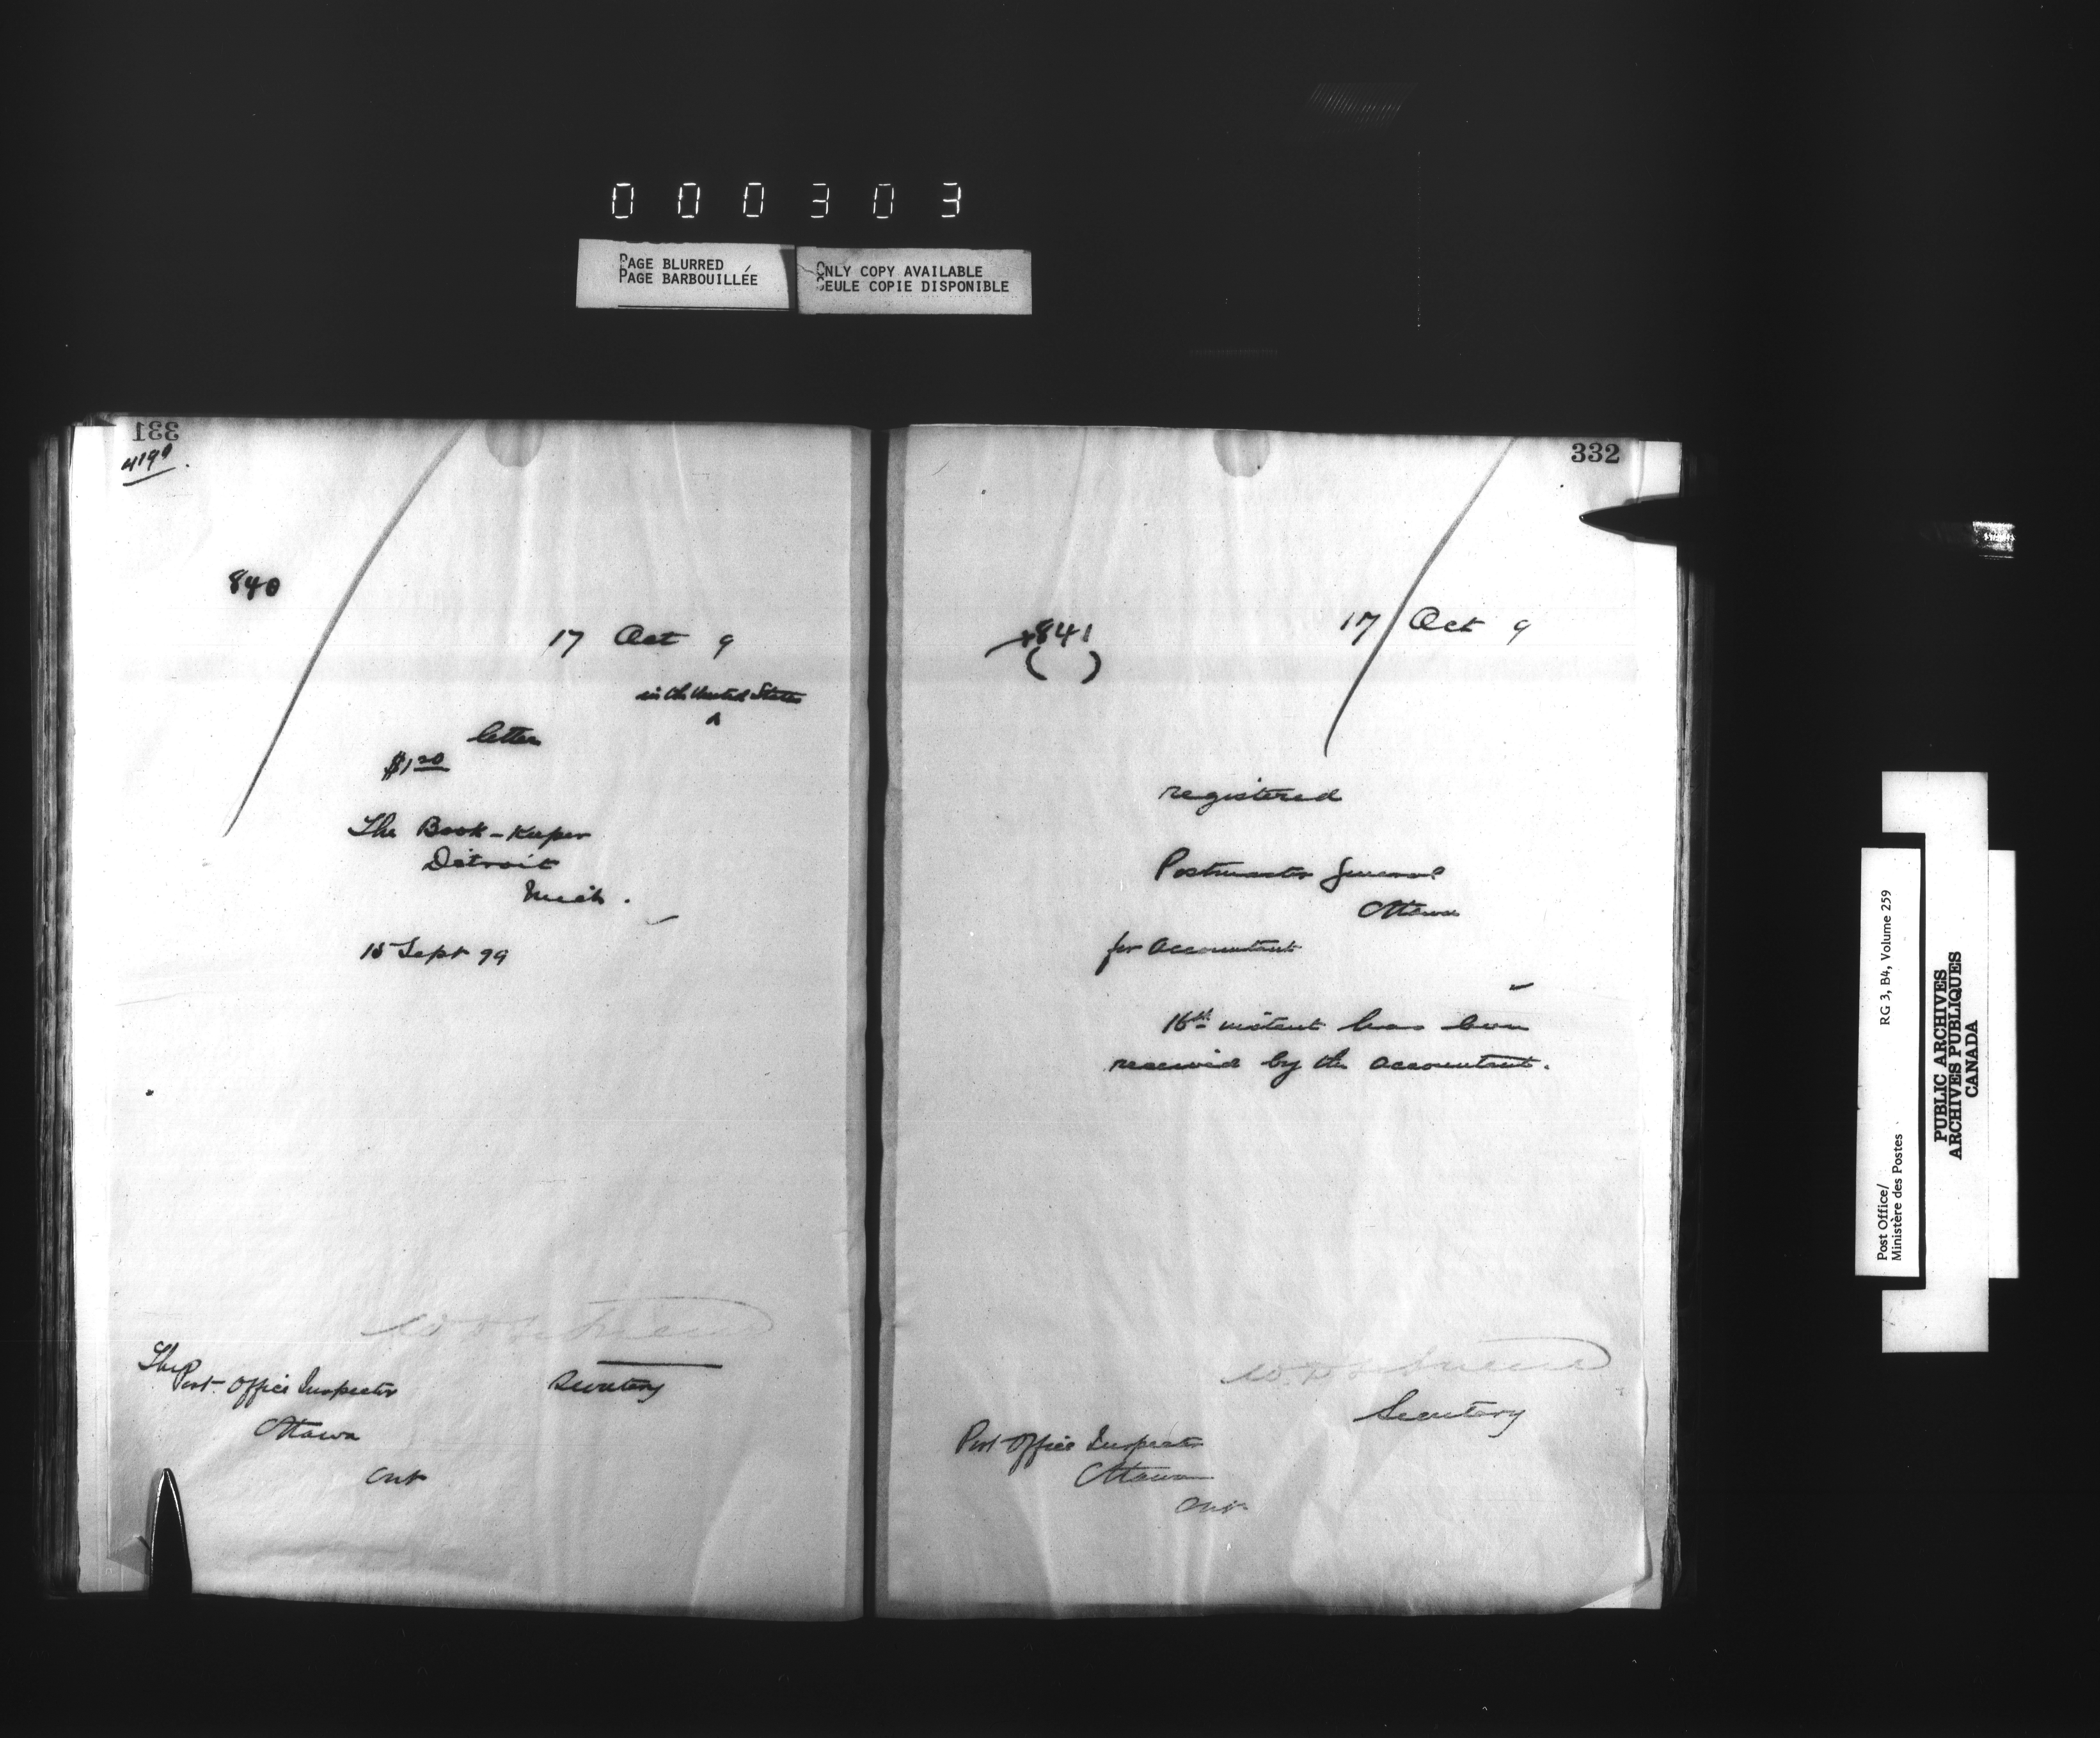 000303
PAGE BLURRED
PAGE BARBOUILLÉE
ONLY COPY AVAILABLE
SEULE COPIE DISPONIBLE
331
4199.
840
17 Oct 9
in the United States
^
letter
$1.20
The Book-Keeper
Detroit
Mich.
15 Sept 99
Secretary
The
Post Office Inspector
Ottawa
Ont
332
841
( )
17 Oct 9
registered
Postmaster General
Ottawa
for Accountant
16th instant has been
received by the Accountant.
Secretary
Post Office Inspector
Ottawa
Ont
Post Office/
Ministère des Postes
RG 3, B4, Volume 259
PUBLIC ARCHIVES
ARCHIVES PUBLIQUES
CANADA